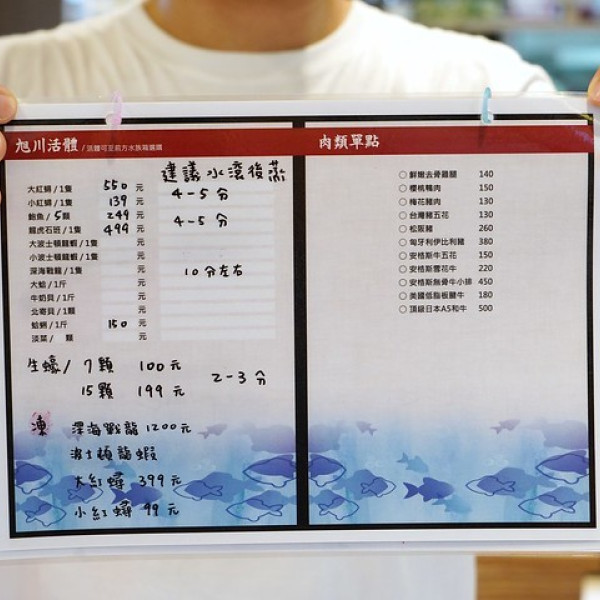 旭川活體 / 活體可至前方水族箱選購
建議水滾後蒸
大紅蟳/1隻 550 元 4-5分
小紅蟳/1隻 139 元
鮑魚/5顆 249 元 4-5分
龍虎石班/1隻 499 元
大波士頓龍蝦/1隻 元
小波士頓龍蝦/1隻 元
深海戰龍/1隻 元 10分左右
大蛤/1斤 元
牛奶貝/1斤 元
北寄貝/1顆 元
蛤蜊/1斤 150 元
淡菜/ 顆 元
生蠔/ 7顆 100元
15顆 199元 2-3分
凍 深海戰龍 1200元
波士頓龍蝦
大紅蟳 399元
小紅蟳 99元
肉類單點
○ 鮮嫩去骨雞腿 140
○ 櫻桃鴨肉 150
○ 梅花豬肉 130
○ 台灣豬五花 130
○ 松阪豬 260
○ 匈牙利伊比利豬 380
○ 安格斯牛五花 150
○ 安格斯雪花牛 220
○ 安格斯無骨牛小排 450
○ 美國低脂板腱牛 180
○ 頂級日本A5和牛 500